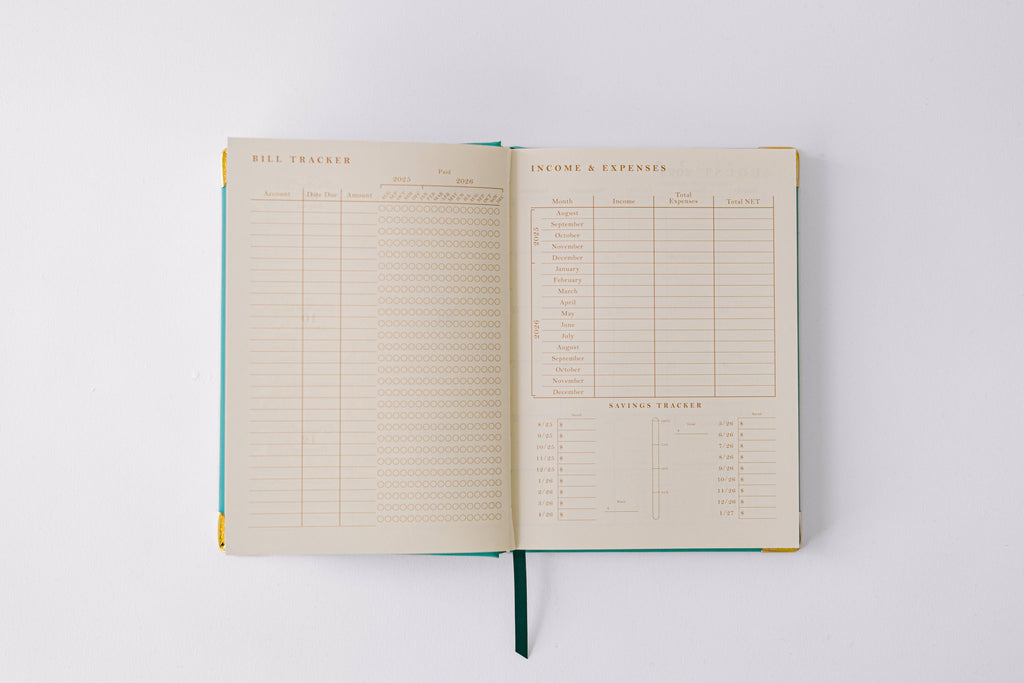 BILL TRACKER
Paid
2025 2026
Account Date Due Amount
INCOME & EXPENSES
Month Income Total Expenses Total NET
2025
August
September
October
November
December
2026
January
February
March
April
May
June
July
August
September
October
November
December
SAVINGS TRACKER
Saved
8/25 $
9/25 $
10/25 $
11/25 $
12/25 $
1/26 $
2/26 $
3/26 $
4/26 $
Start
$
100%
75%
50%
25%
Goal
$
Saved
5/26 $
6/26 $
7/26 $
8/26 $
9/26 $
10/26 $
11/26 $
12/26 $
1/27 $